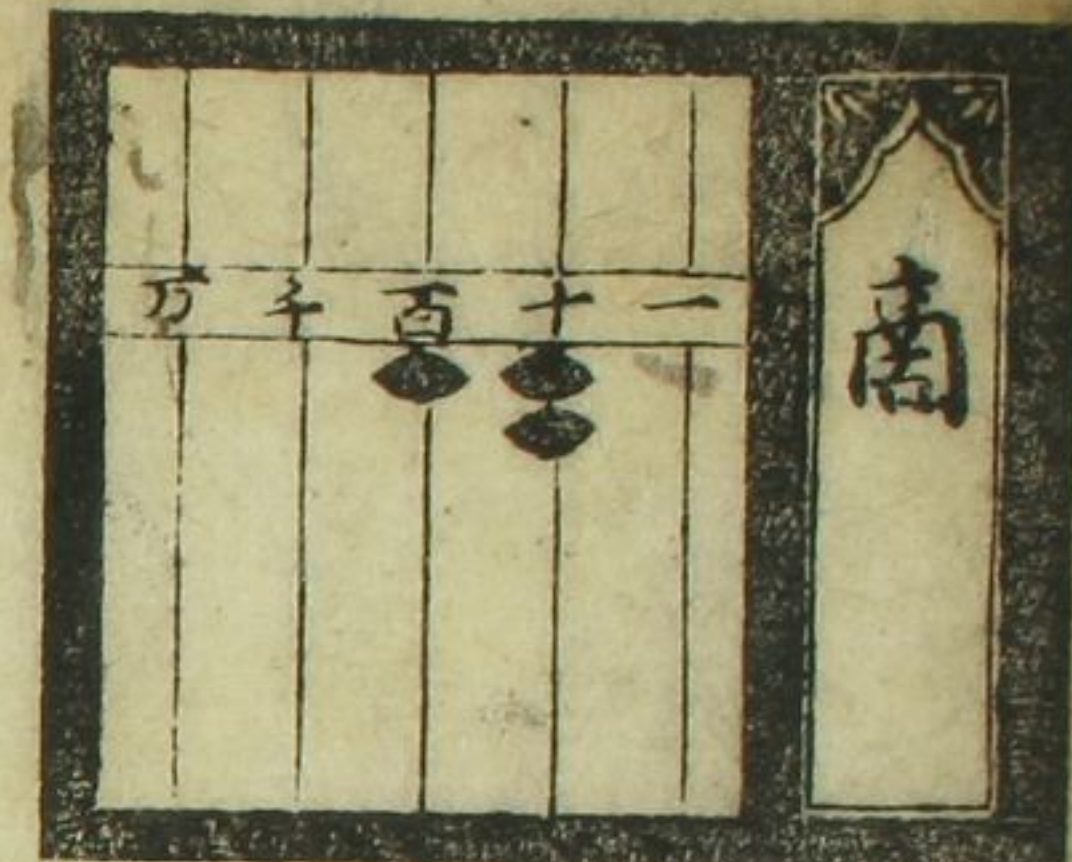 商
一十百千万